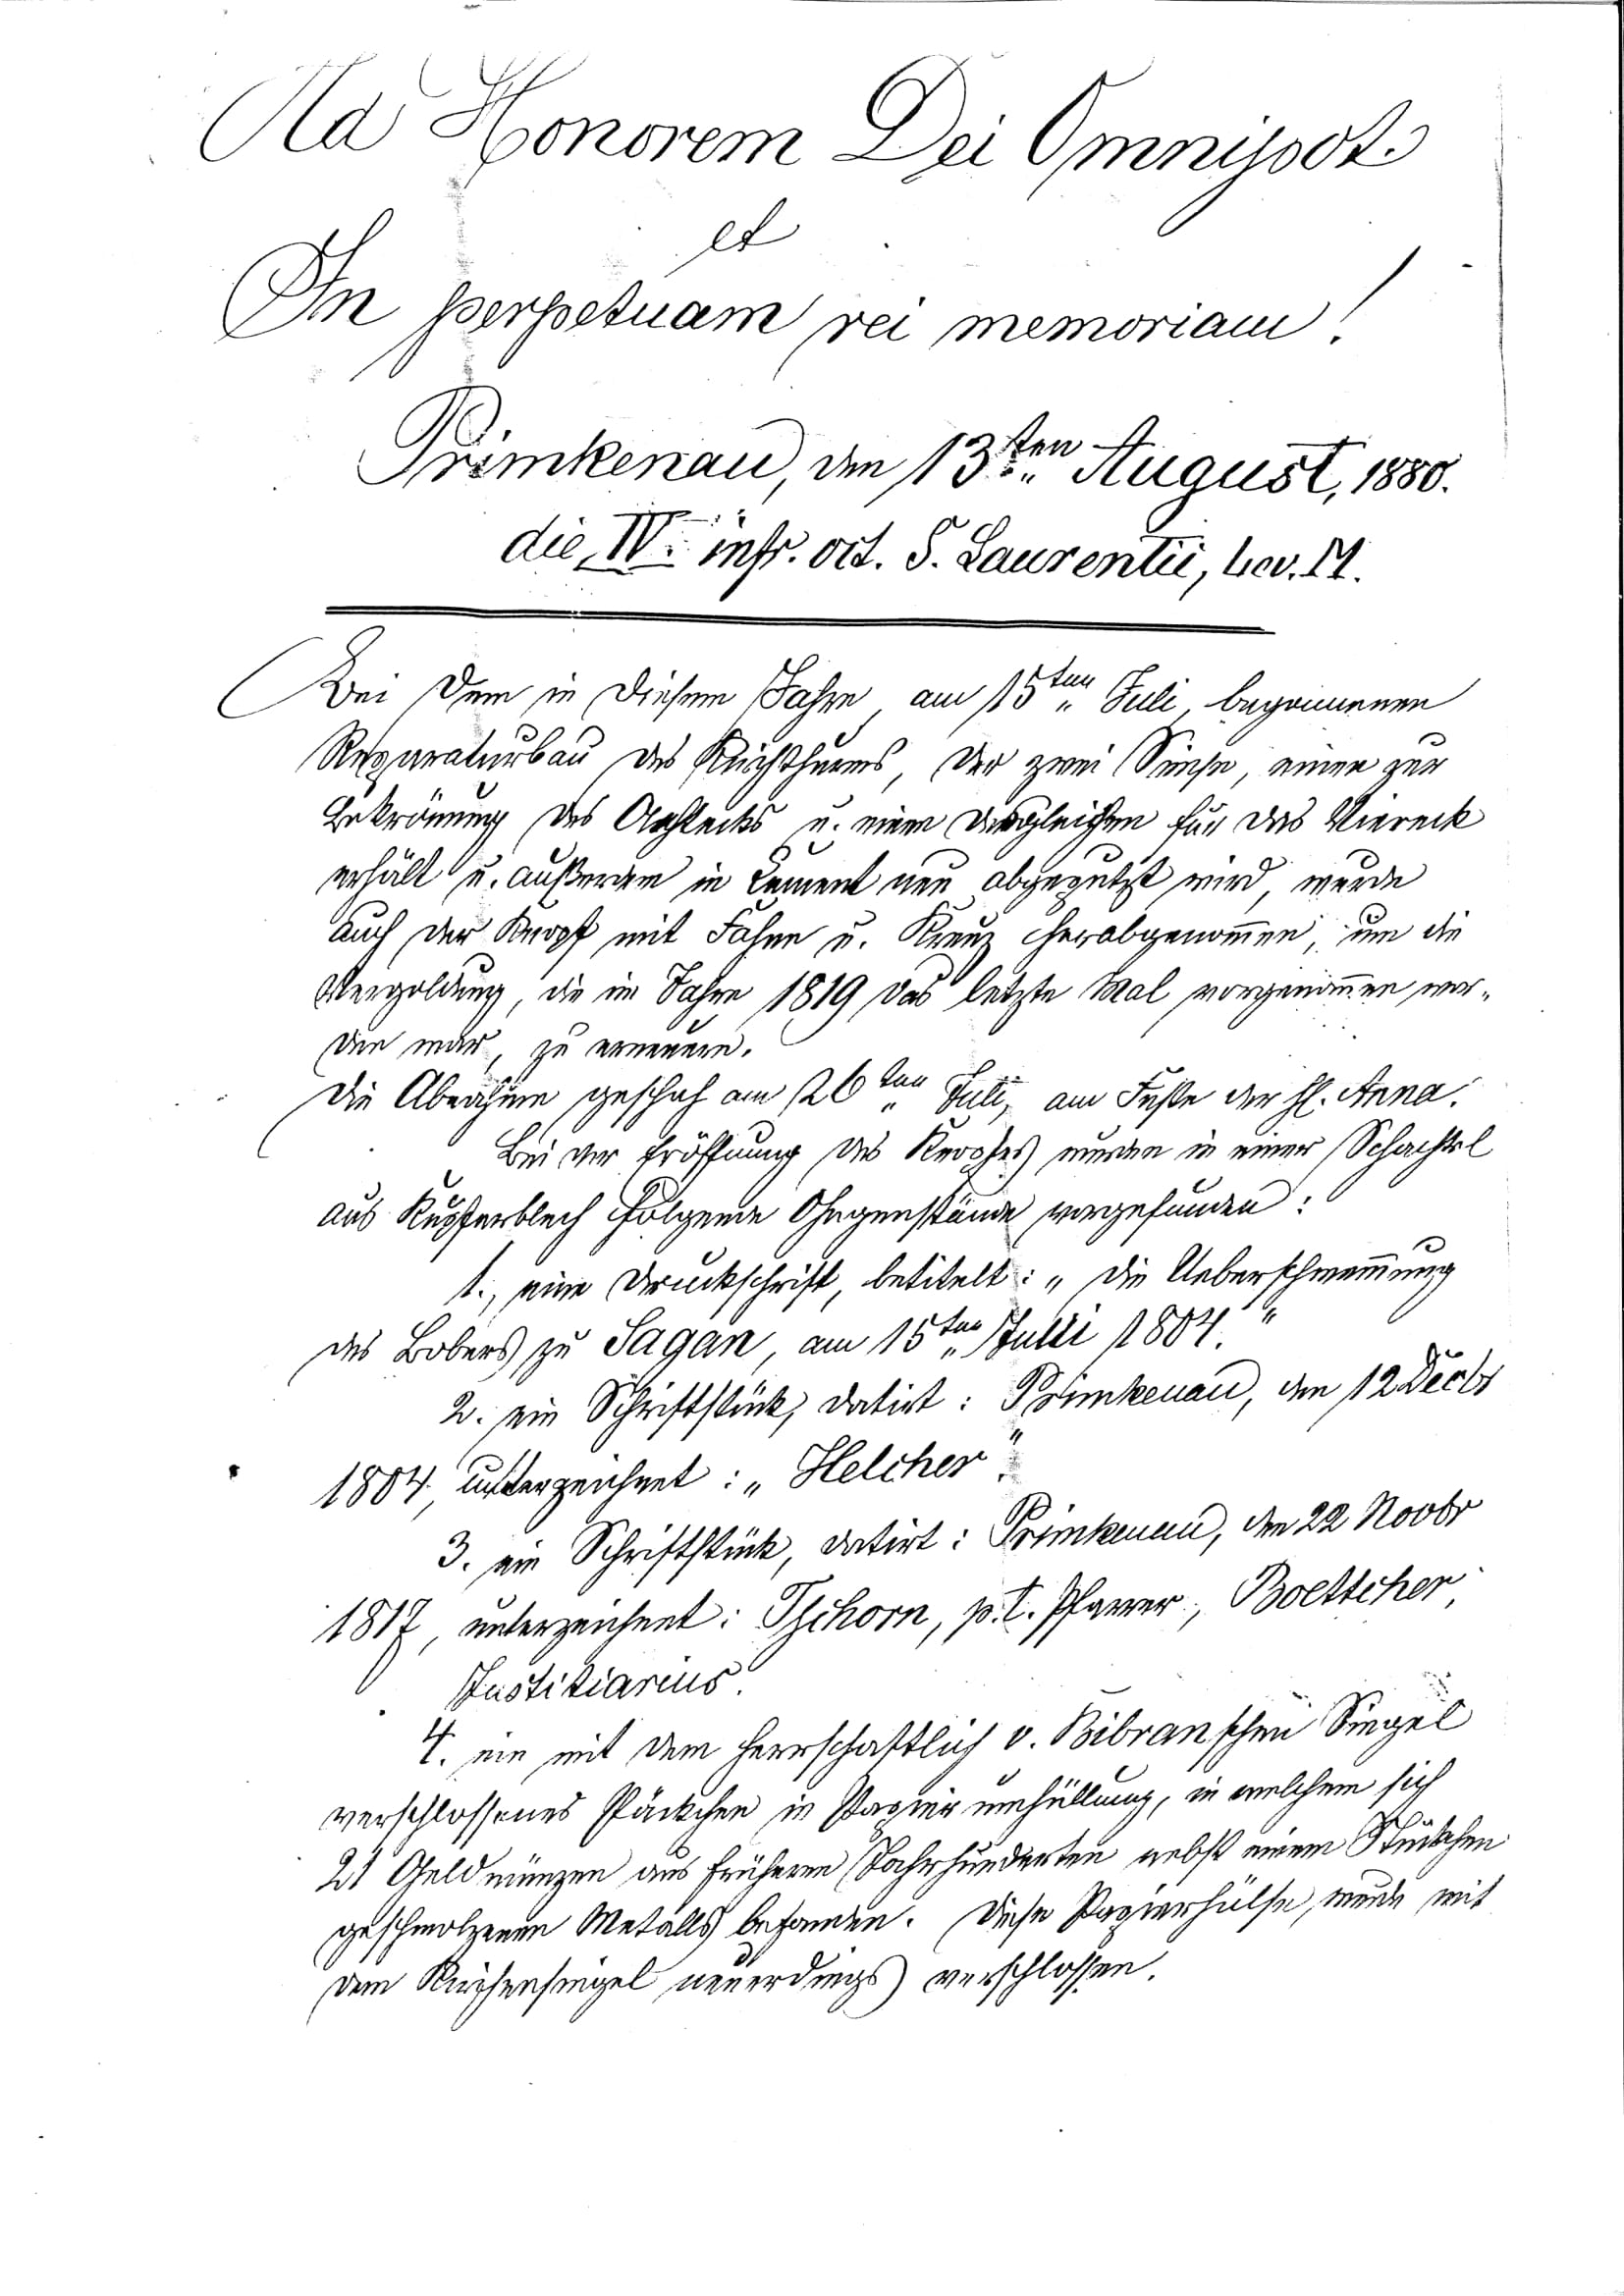 Ad Honorem Dei Omnipot.
et
In perpetuam rei memoriam!
Primkenau, den 13ten August, 1880.
die IV. infr. oct. S. Laurentii, Lev. M.
Bei dem in diesem Jahre, am 15ten Juli, begonnenen
Reparaturbau des Kirchthurms, der zwei Simse, einen zur
Bekrönung des Achtecks u. einen dergleichen für das Viereck
erhält u. außerdem in Cement neu abgeputzt wird, wurde
auch der Knopf mit Fahne u. Kreuz herabgenommen, um die
Vergoldung, die im Jahre 1819 das letzte Mal vorgenommen wor-
den war, zu erneuern.
Die Abnahme geschah am 26ten Juli, am Feste der hl. Anna.
Bei der Eröffnung des Knopfes wurden in einer Schachtel
aus Kupferblech folgende Gegenstände vorgefunden:
1., eine Druckschrift, betitelt: „Die Ueberschwemmung
des Bobers zu Sagan, am 15ten Juli 1804."
2. ein Schriftstück, datirt: Primkenau, den 12 Decbr
1804, unterzeichnet: „Helcher".
3. ein Schriftstück, datirt: Primkenau, den 22 Novbr
1817, unterzeichnet: Tschorn, p. t. Pfarrer, Boettcher,
Justitiarius.
4. ein mit dem herrschaftlich v. Bibranschen Siegel
verschlossenes Päckchen in Papierumhüllung, in welchem sich
21 Geldmünzen aus früheren Jahrhunderten nebst einem Stückchen
geschmolzenen Metalls befanden. Diese Papierhülse wurde mit
dem Kirchensiegel neuerdings verschlossen.